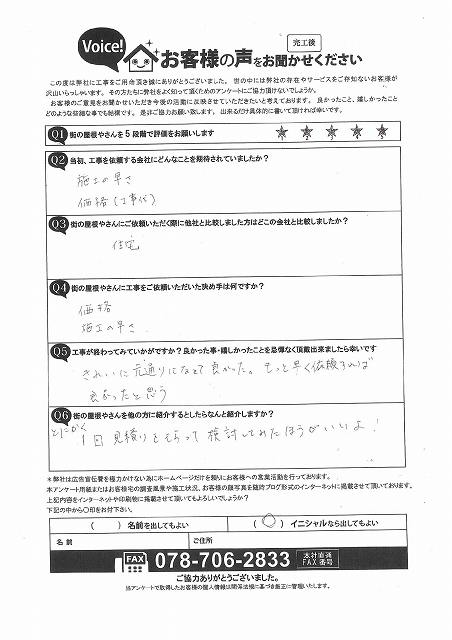 Voice!
お客様の声をお聞かせください
完工後
この度は弊社に工事をご用命頂き誠にありがとうございました。 世の中には弊社の存在やサービスをご存知ないお客様が
沢山いらっしゃいます。その方たちに弊社をよく知って頂くためのアンケートにご協力頂けないでしょうか。
お客様のご意見をお聞かせいただき今後の活動に反映させていただきたいと考えております。 良かったこと、嬉しかったこと
どのような些細な事でも結構です。 是非ご協力お願い致します。 出来るだけ具体的に書いて頂ければ幸いです。
Q1 街の屋根やさんを5段階で評価をお願いします
★ ★ ★ ★ ★
Q2 当初、工事を依頼する会社にどんなことを期待されていましたか?
施工の早さ
価格(工事代)
Q3 街の屋根やさんにご依頼いただく際に他社と比較しました方はどこの会社と比較しましたか?
住宅
Q4 街の屋根やさんに工事をご依頼いただいた決め手は何ですか?
価格
施工の早さ
Q5 工事が終わってみていかがですか?良かった事・嬉しかったことを忌憚なく頂戴出来ましたら幸いです
きれいに元通りになって良かった。もっと早く依頼すれば
良かったと思う
Q6 街の屋根やさんを他の方に紹介するとしたらなんと紹介しますか?
とにかく
1回見積りをもらって検討してみたほうがいいよ!
*弊社は広告宣伝費を極力かけない為にホームページだけを頼りにお客様への営業活動を行っております。
本アンケート用紙またはお客様宅の調査風景や施工状況、お客様の顔写真を随時ブログ形式のインターネットに掲載させて頂いております。
上記内容をインターネットや印刷物に掲載させて頂いてもよろしいでしょうか?
下記の中から○印をお付下さい。
( ) 名前を出してもよい
(○) イニシャルなら出してもよい
名前
ご住所
FAX 078-706-2833 本社直通 FAX番号
ご協力ありがとうございました。
当アンケートで取得したお客様の個人情報は関係法規に基づき厳正に管理いたします。